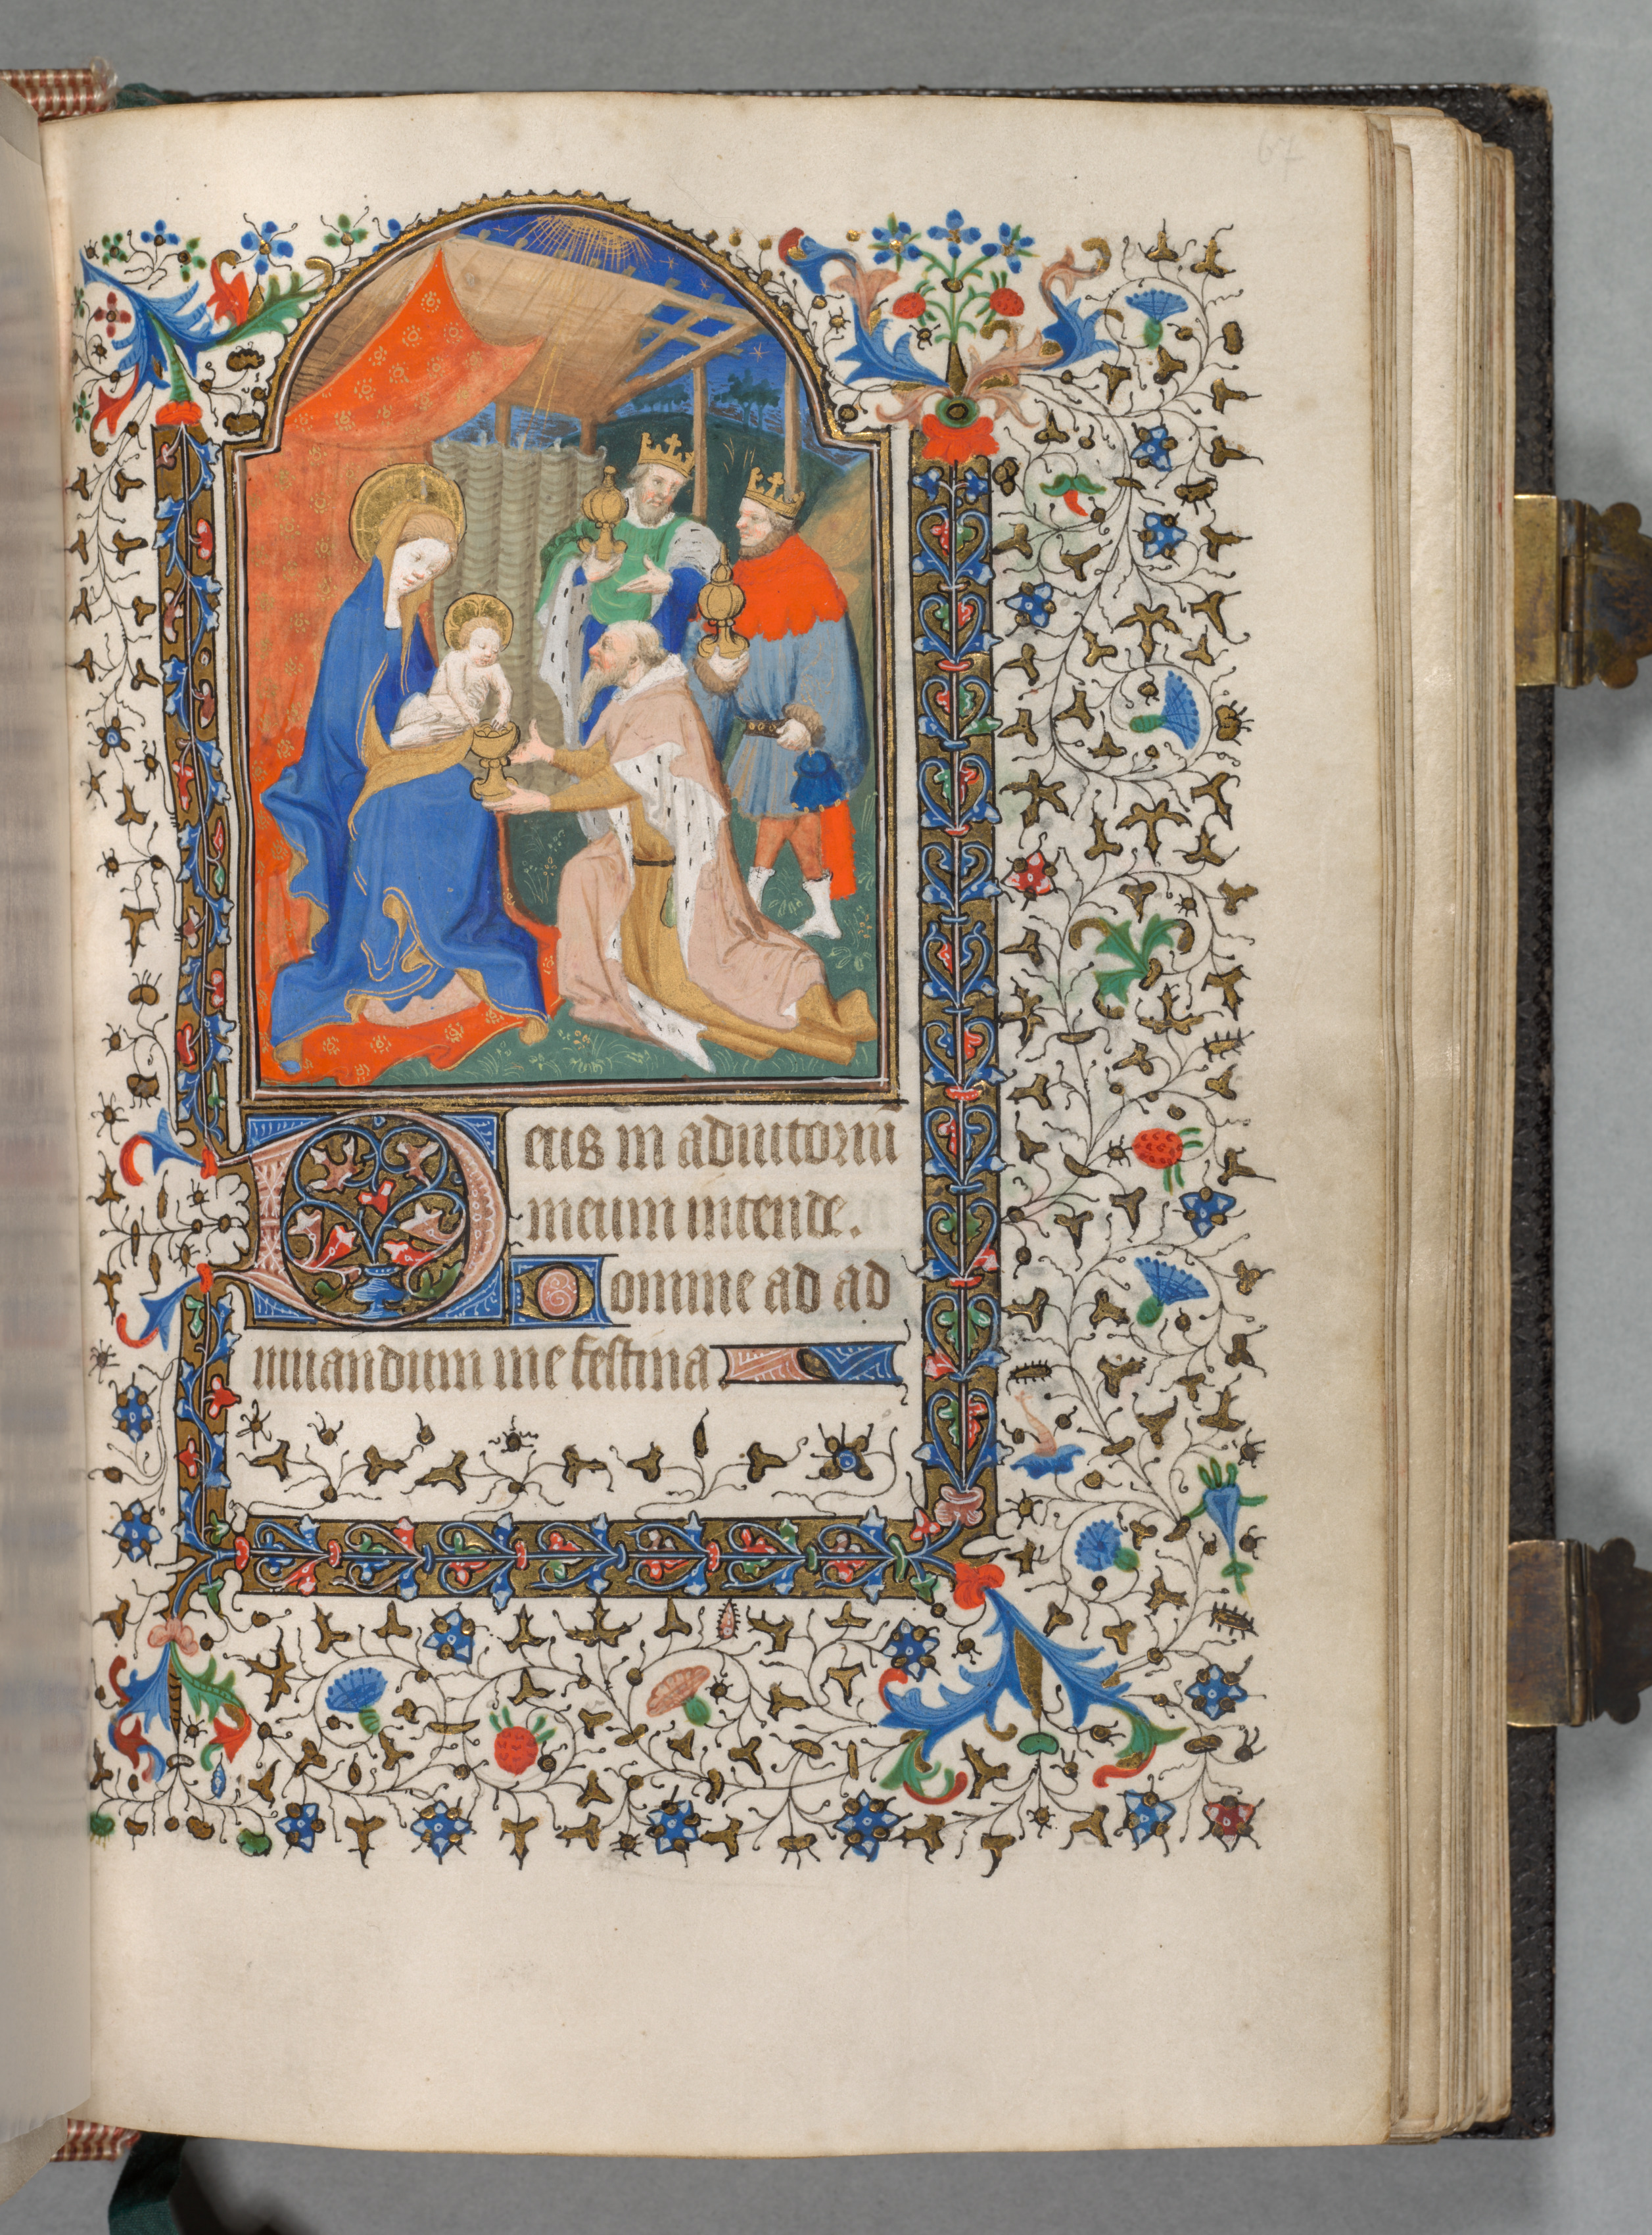 67
Deus in adiutoriū
meum intende.
Domine ad ad
iuuandum me festina